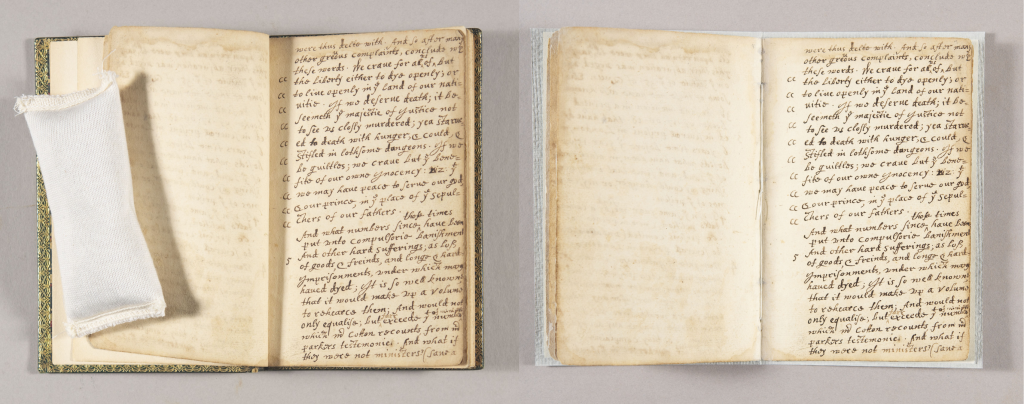 were thus delte with. And so after many
other greous complaints, conclude wth
these words. We crave for all of us, but
cc the Liberty either to dye openly, or
cc to live openly in ye land of our nati
cc vitie. If we deserve death; it be-
cc seemeth ye majestie of Justice not
cc to see us closly murdered; yea starve
cc ed to death with hunger, & could, &
cc Stifled in lothsome dungeons. If we
cc be guiltles; we crave but ye bene-
cc fite of our owne ynocency: viz. yt
cc we may have peace to serve our god,
cc & our prince, in ye place of ye sepul-
cc thers of our fathers.
And what numbers since those times, have been
put unto compulsorie banishment
And other hard sufferings; as loss
5 of goods & freinds, and longe & hard
ymprisonments, under which many
haved dyed; it is so well knowne
that it would make up a volume
to rehearse them; And would not
only equalise, but exceede ye number
which mr Cotton recounts from mr
parkers testemonie. And what if
they were not ministers (save a
were thus delte with. And so after many
other greous complaints, conclude wth
these words. We crave for all of us, but
cc the Liberty either to dye openly, or
cc to live openly in ye land of our nati
cc vitie. If we deserve death; it be-
cc seemeth ye majestie of Justice not
cc to see us closly murdered; yea starve
cc ed to death with hunger, & could, &
cc Stifled in lothsome dungeons. If we
cc be guiltles; we crave but ye bene-
cc fite of our owne ynocency: viz. yt
cc we may have peace to serve our god,
cc & our prince, in ye place of ye sepul-
cc thers of our fathers.
And what numbers since those times, have been
put unto compulsorie banishment
And other hard sufferings; as loss
5 of goods & freinds, and longe & hard
ymprisonments, under which many
haved dyed; it is so well knowne
that it would make up a volume
to rehearse them; And would not
only equalise, but exceede ye number
which mr Cotton recounts from mr
parkers testemonie. And what if
they were not ministers (save a